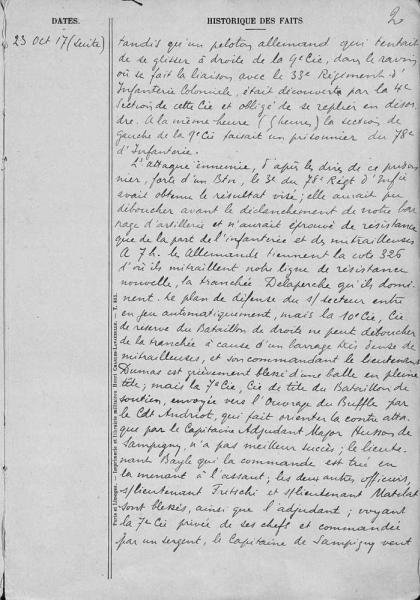 DATES.
HISTORIQUE DES FAITS
2
23 Oct 17 (suite)
tandis qu'un peloton allemand qui tentait
de se glisser à droite de la 9e Cie, dans le ravin
où se fait la liaison avec le 33e Régiment d'
Infanterie Coloniale, était découvert par la 4e
section de cette Cie et obligé de se replier en désor
dre. A la même heure (5 heures) la section de
gauche de la 9e Cie faisait un prisonnier du 78e
d'Infanterie.
L'attaque ennemie, d'après les dires de ce prison
nier, forte d'un Btn, le 3e du 78e Régt d'Infie
avait obtenu le résultat visé; elle aurait pu
déboucher avant le déclanchement de notre bar
rage d'artillerie et n'aurait éprouvé de résistance
que de la part de l'infanterie et des mitrailleuses
A 7h. les Allemands tiennent la cote 326
d'où ils mitraillent notre ligne de résistance
nouvelle, la tranchée Delaperche qu'ils domi
nent. Le plan de défense du s/secteur entre
en jeu automatiquement, mais la 10e Cie, Cie
de réserve du Bataillon de droite ne peut déboucher
de la tranchée à cause d'un barrage très dense de
mitrailleuses, et son commandant le lieutenant
Dumas est grièvement blessé d'une balle en pleine
tête; mais la 7e Cie, Cie de tête du Bataillon de
soutien, envoyée vers l'Ouvrage du Buffle par
le Cdt Andriot, qui fait orienter la contre atta
que par le Capitaine Adjudant Major Husson de
Sampigny, n'a pas meilleur succès; le lieute
nant Bayle qui la commande est tué en
la menant à l'assaut; les deux autres officiers,
s/lieutenant Fritschi et s/lieutenant Matelat
sont blessés, ainsi que l'adjudant; voyant
la 7e Cie privée de ses chefs et commandée
par un sergent, le Capitaine de Sampigny veut
Paris et Limoges. — Imprimerie et librairie militaires Henri CHARLES-LAVAUZELLE. — T.